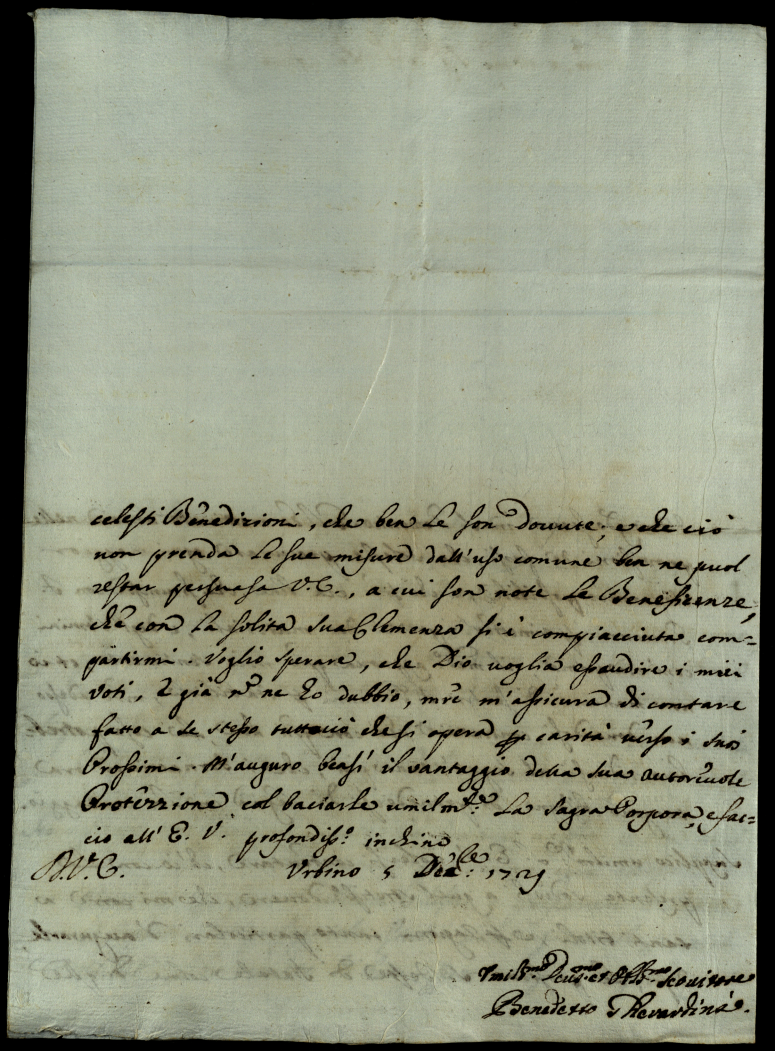 celesti Benedizioni, che ben le son dovute; e che ciò
non prenda le sue misure dall'uso comune ben ne puol
restar persuasa V.E., a cui son note le Beneficenze,
che con la solita sua Clemenza si è compiacciuta com=
partirmi. Voglio sperare, che Dio voglia esaudire i miei
voti, e già nº ne ho dubbio, mre m'assicura di contare
fatto a se stesso tuttociò che si opera p carità verso i suoi
Prossimi. M'auguro bensì il vantaggio della sua autorevole
Protezzione col baciarle umilmte la Sagra Porpora, e fac=
cio all'E. V. profondisso: inchino
D.V.E. Urbino 5 Dece: 1729
Umilmo Devmo et Obbmo Servitore
Benedetto